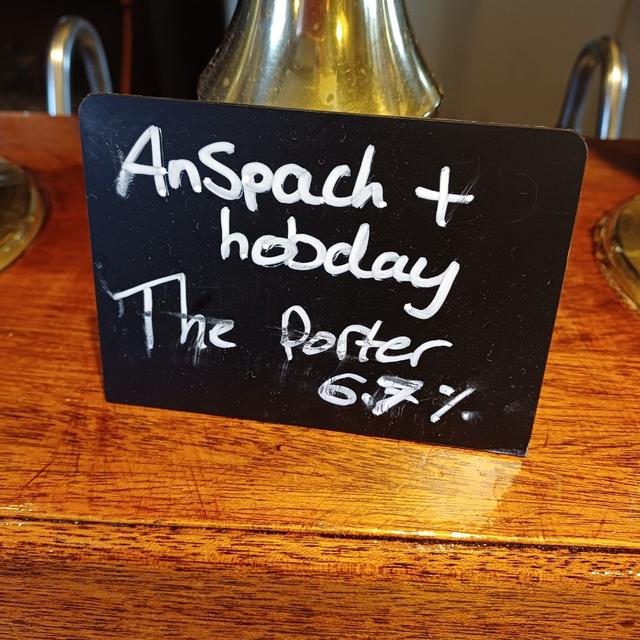 AnSpach +
hobday
The Porter
6.7%